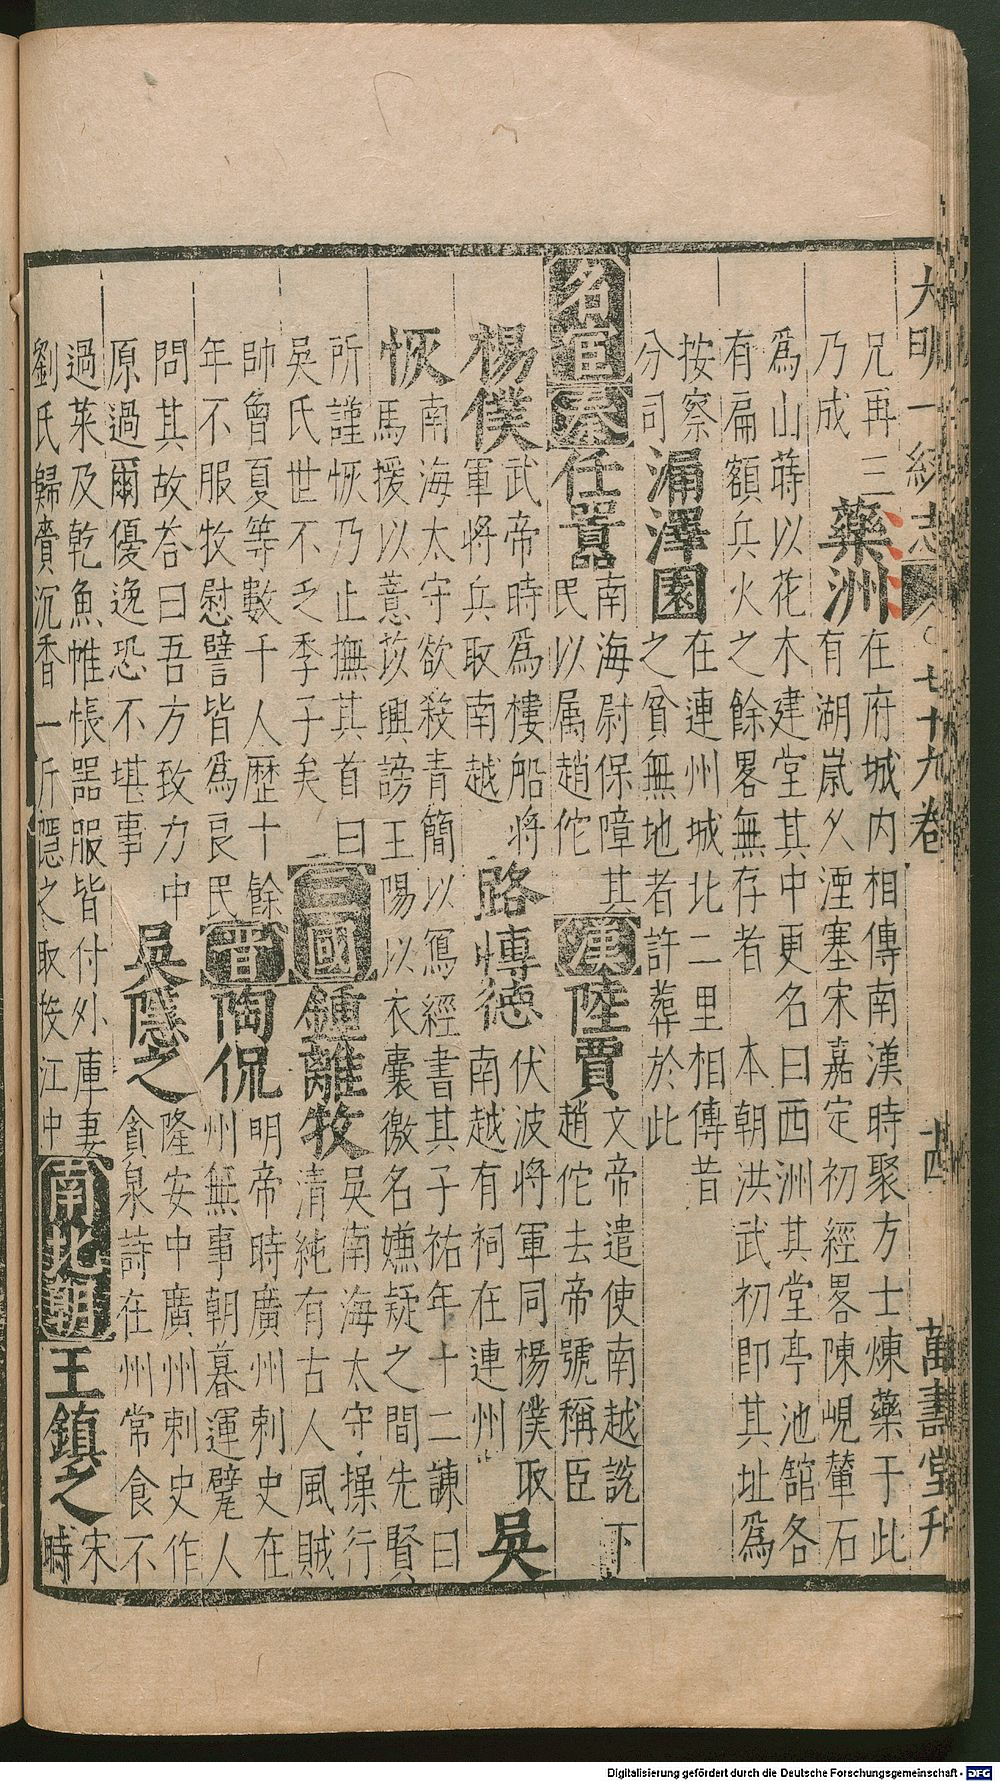 大明一統志 七十九卷 十四 萬壽堂刋
兄再三
乃成
藥洲
在府城内相傳南漢時聚方士煉藥于此
有湖嵗乆湮塞宋嘉定初經畧陳峴輦石
爲山蒔以花木建堂其中更名曰西洲其堂亭池舘各
有扁額兵火之餘畧無存者 本朝洪武初即其址爲
按察
分司
漏澤園
在連州城北二里相傳昔
之貧無地者許葬於此
名宦
秦
任囂
南海尉保障其
民以属趙佗
漢
陸賈
文帝遣使南越説下
趙佗去帝號稱臣
楊僕
武帝時爲樓船將
軍將兵取南越
路愽德
伏波將軍同楊僕取
南越有祠在連州
吳
恢
南海太守欲殺青簡以寫經書其子祐年十二諫曰
馬援以薏苡興謗王陽以衣囊徼名嫌疑之間先賢
所謹恢乃止撫其首曰
吳氏世不乏季子矣
三國
鍾離牧
吳南海太守操行
清純有古人風賊
帥曾夏等數千人歴十餘
年不服牧慰譬皆爲良民
晉
陶侃
明帝時廣州刺史在
州無事朝暮運甓人
問其故荅曰吾方致力中
原過爾優逸恐不堪事
吳隱之
隆安中廣州刺史作
貪泉詩在州常食不
過菜及乾魚帷帳器服皆付外庫妻
劉氏歸賷沉香一斤隱之取投江中
南北朝
王鎮之
宋
時
Digitalisierung gefördert durch die Deutsche Forschungsgemeinschaft - DFG